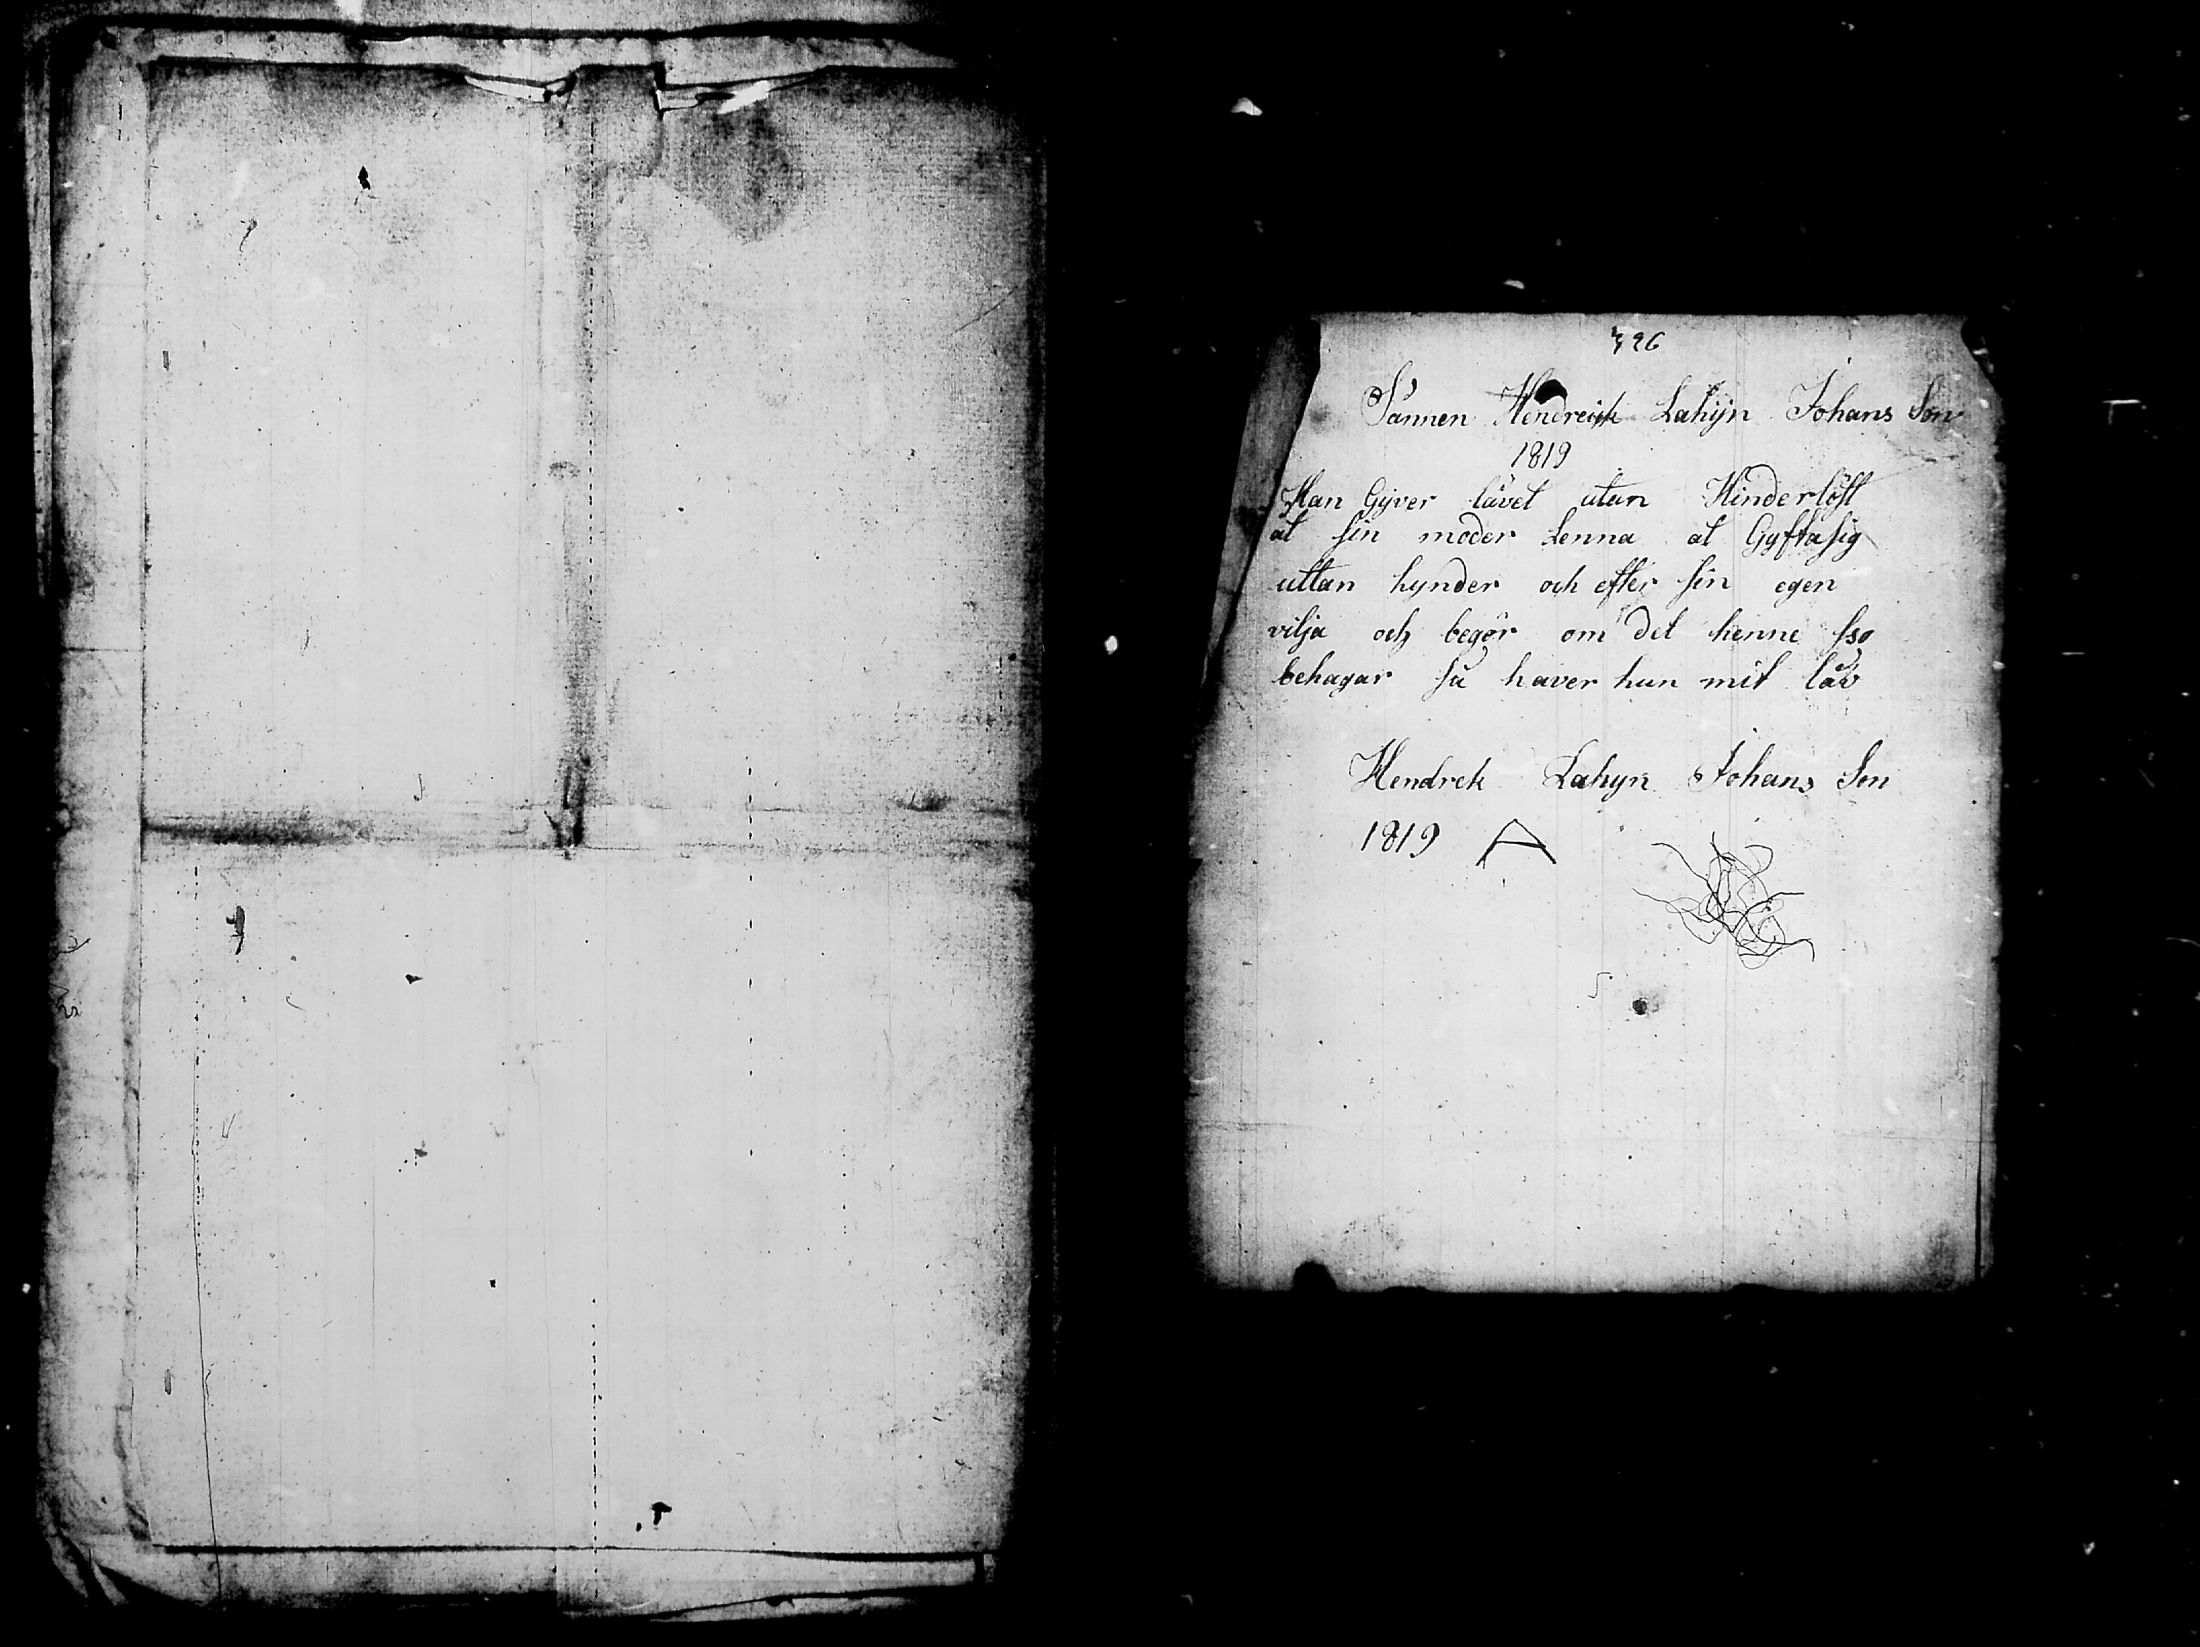 Sånnen Hendreick Lahijn Johans Son
1819
Han Gijver låvet utan Hinderlöst
åt sin moder Lenna at Gyfta sig
uttan hynder och efter sin egen
vilja och begör om det henne sso
behagar så haver hun mit låv
Hendrek Lahyn Johans Son
1819 A